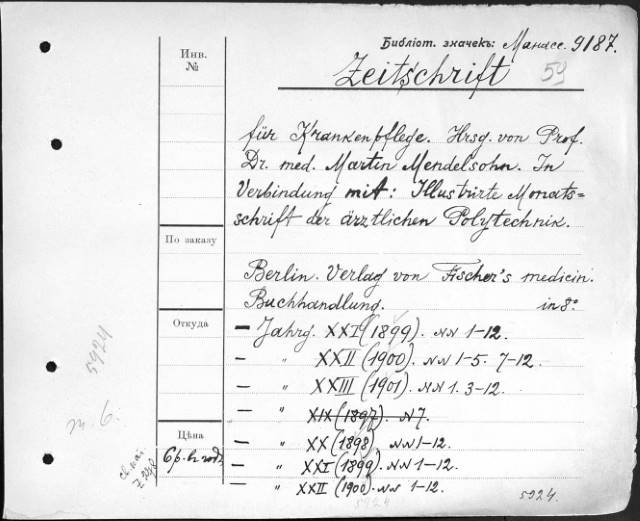 Библіот. значекъ: Манасс. 9187.
Инв.
№
Zeitschrift 59
für Krankenpflege. Hrsg. von Prof.
Dr. med. Martin Mendelsohn. In
Verbindung mit: Illustrirte Monats=
schrift der ärztlichen Polytechnik.
По заказу
Berlin. Verlag von Fischer's medicin.
Buchhandlung. in 8º
Откуда
— Jahrg. XXI (1899). NN 1-12.
— " XXII (1900). NN 1-5. 7-12.
— " XXIII (1901). NN 1. 3-12.
— " XIX (1897). N 7.
Цѣна
— " XX (1898). NN 1-12.
6 р. в годъ
— " XXI (1899). NN 1-12.
— " XXII (1900). NN 1-12.
5924.
5924
5924
m. 6.